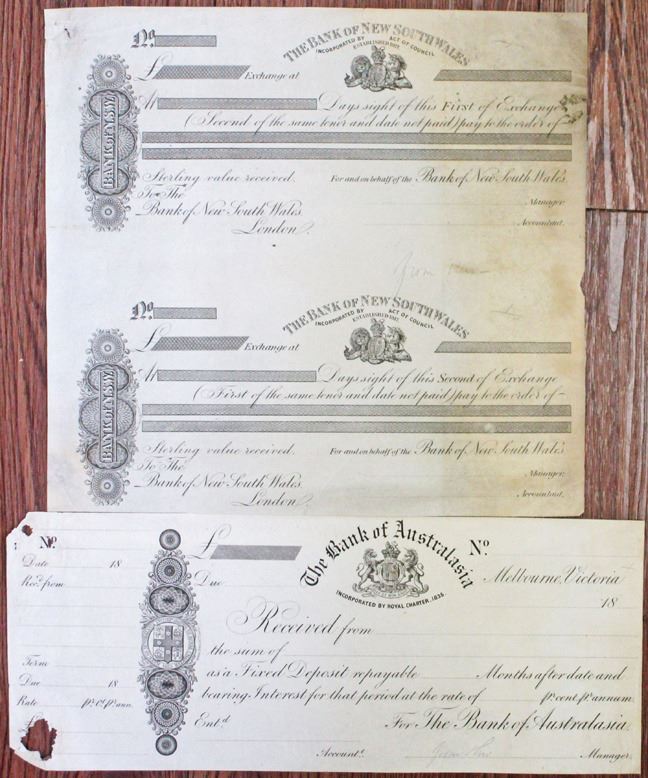 No.
THE BANK OF NEW SOUTH WALES
INCORPORATED BY ACT OF COUNCIL
ESTABLISHED 1817
£ Exchange at
BANK OF N.S.W.
At Days sight of this First of Exchange
(Second of the same tenor and date not paid) pay to the order of
Sterling value received. For and on behalf of the Bank of New South Wales
To The Manager.
Bank of New South Wales Accountant.
London.
from
No.
THE BANK OF NEW SOUTH WALES
INCORPORATED BY ACT OF COUNCIL
ESTABLISHED 1817
£ Exchange at
BANK OF N.S.W.
At Days sight of this Second of Exchange
(First of the same tenor and date not paid) pay to the order of
Sterling value received. For and on behalf of the Bank of New South Wales
To The Manager.
Bank of New South Wales Accountant.
London.
No.
Date 18
Recd. from
Term
Due 18
Rate pr. Ct. pr. ann.
£
£
The Bank of Australasia No.
INCORPORATED BY ROYAL CHARTER, 1835.
Due Melbourne, Victoria
18
Received from
the sum of
as a Fixed Deposit repayable Months after date and
bearing Interest for that period at the rate of pr. cent. pr. annum.
Entd. For The Bank of Australasia.
Accountt. Manager.